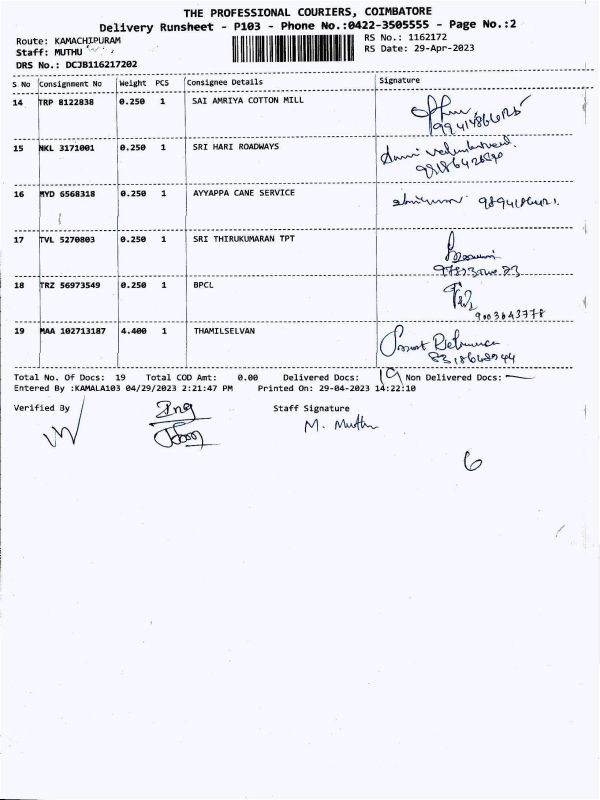 THE PROFESSIONAL COURIERS, COIMBATORE
Delivery Runsheet - P103 - Phone No.:0422-3505555 - Page No.:2
Route: KAMACHIPURAM
RS No.: 1162172
Staff: MUTHU
RS Date: 29-Apr-2023
DRS No.: DCJB116217202
S No Consignment No Weight PCS Consignee Details Signature
14 TRP 8122838 0.250 1 SAI AMRIYA COTTON MILL
15 NKL 3171001 0.250 1 SRI HARI ROADWAYS
16 MYD 6568318 0.250 1 AYYAPPA CANE SERVICE
17 TVL 5270803 0.250 1 SRI THIRUKUMARAN TPT
18 TRZ 56973549 0.250 1 BPCL
9003643778
19 MAA 102713187 4.400 1 THAMILSELVAN
Total No. Of Docs: 19 Total COD Amt: 0.00 Delivered Docs: 19 Non Delivered Docs: —
Entered By :KAMALA103 04/29/2023 2:21:47 PM Printed On: 29-04-2023 14:22:10
Verified By Staff Signature
M. Muthu
6